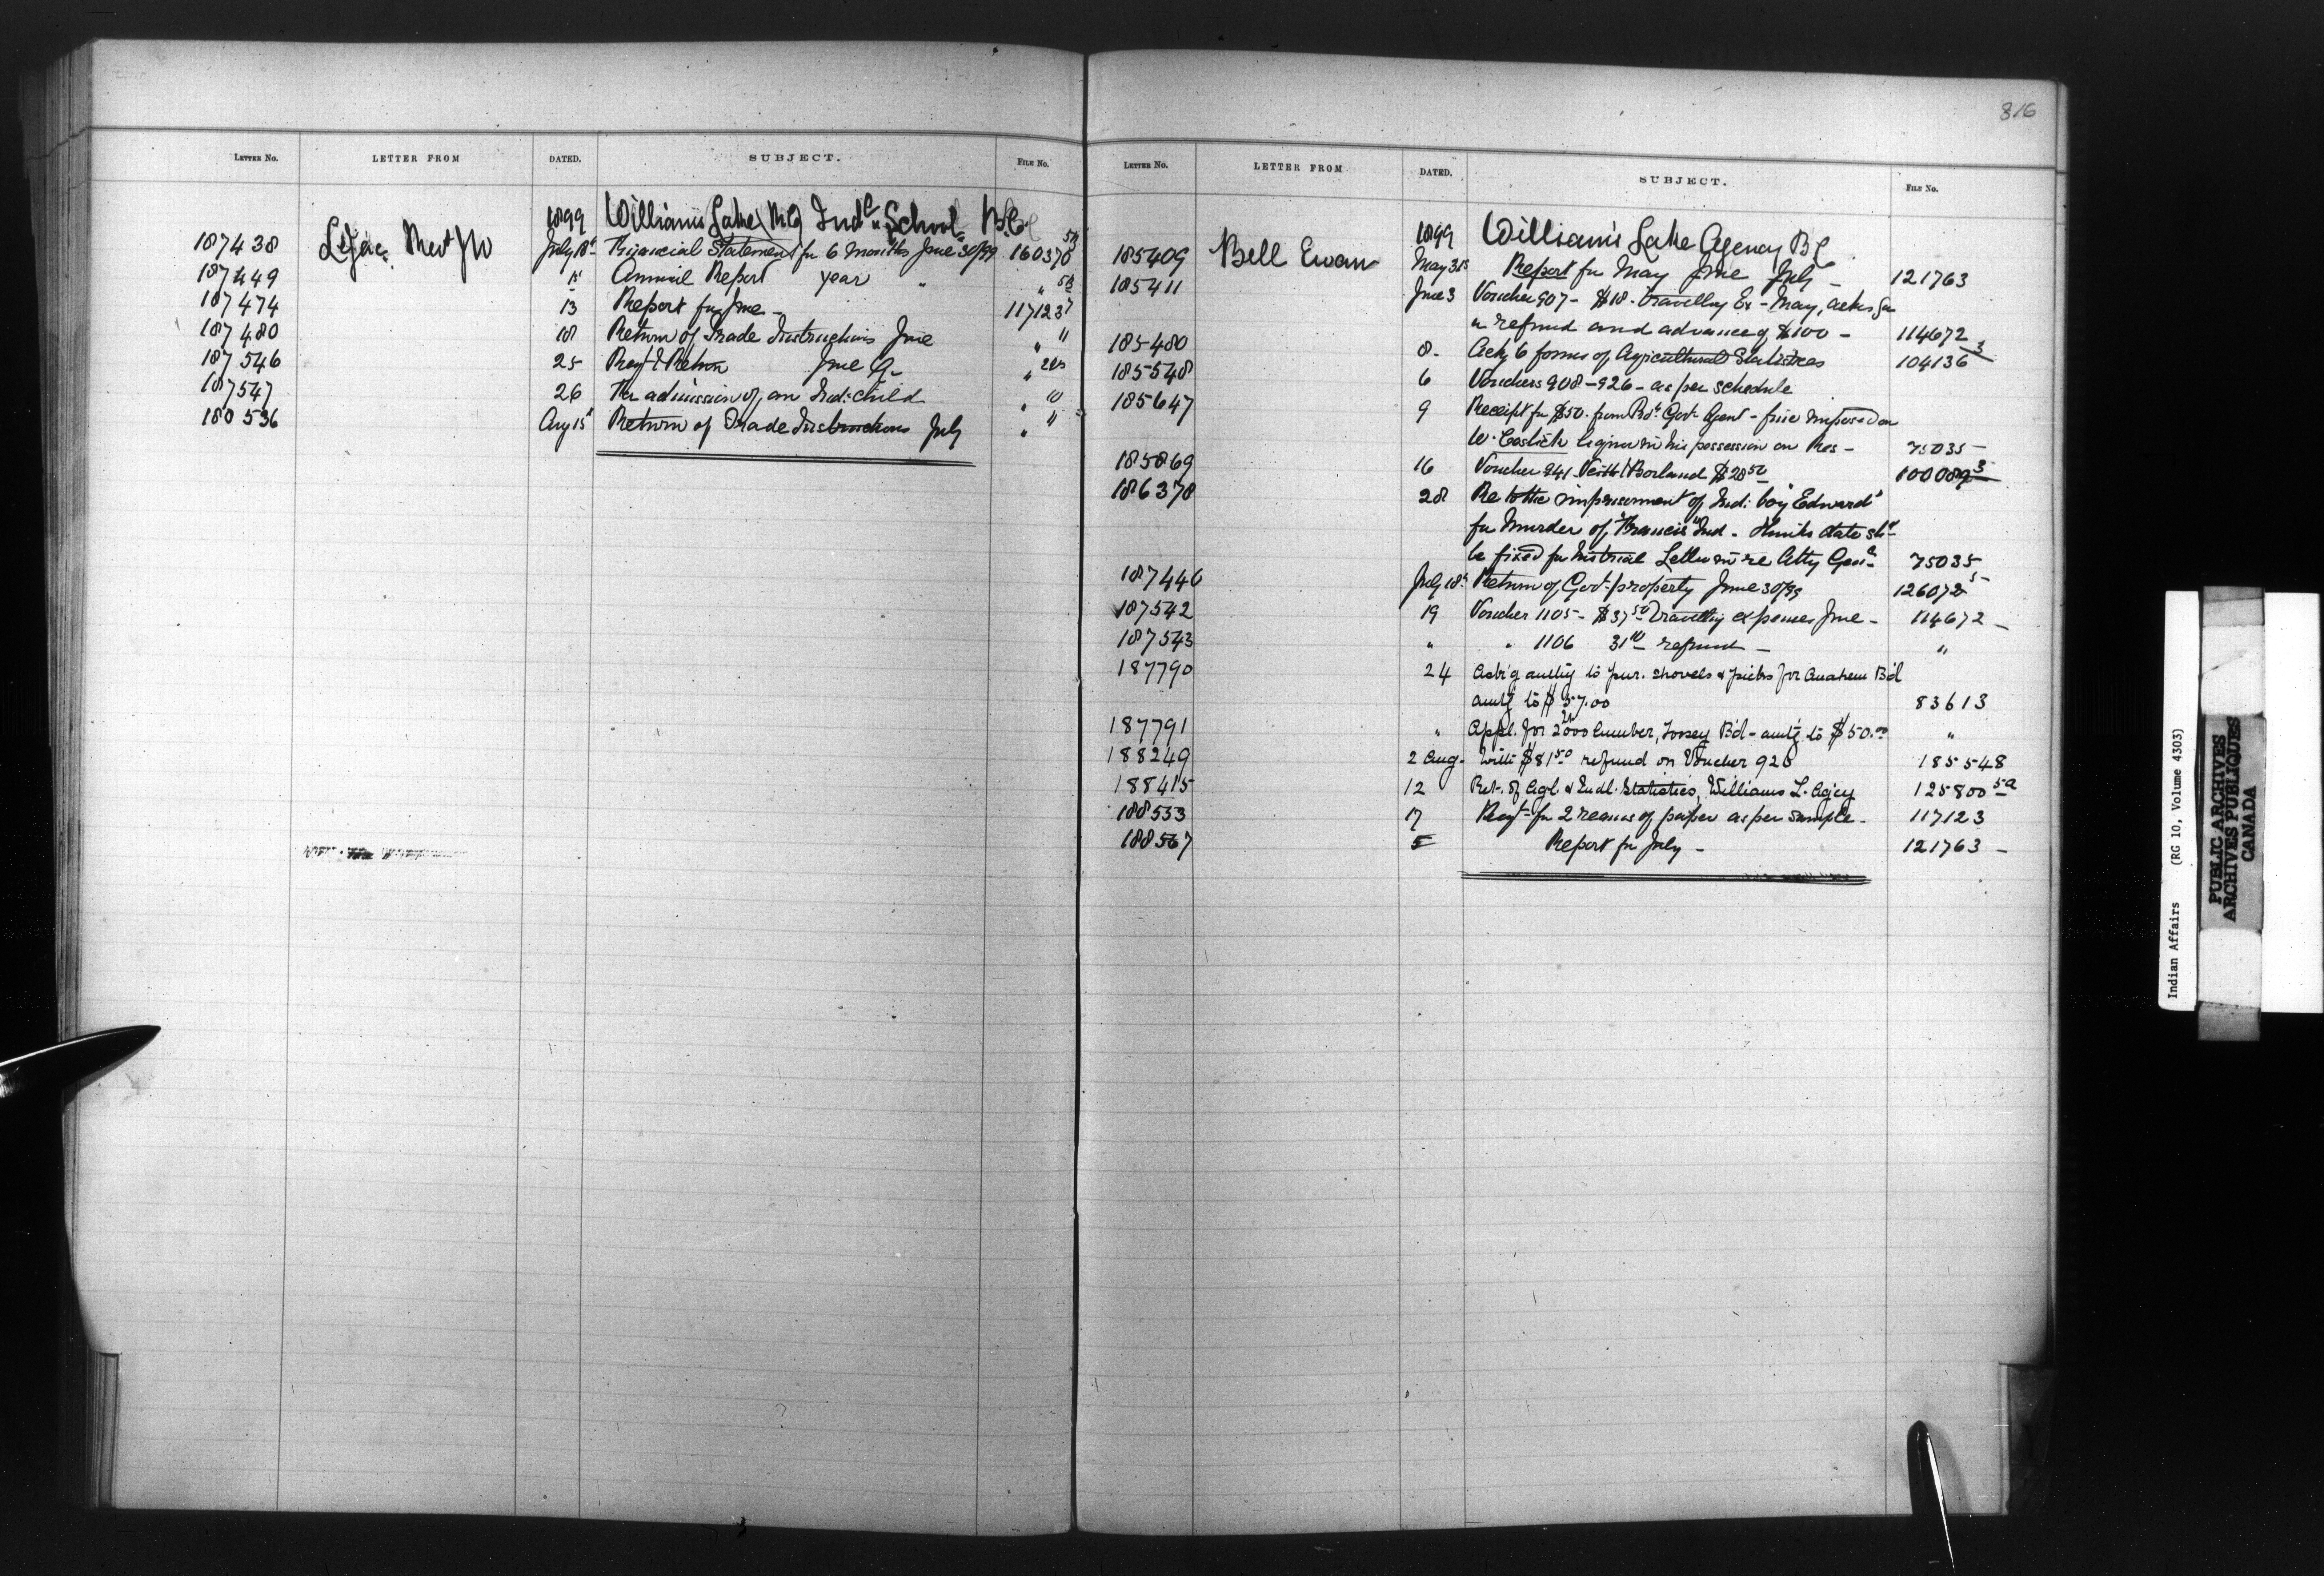 816
LETTER NO. LETTER FROM DATED. SUBJECT. FILE NO.
1899 Williams Lake Ind. School B.C.
187438 Rev JM July 18 Financial Statement for 6 months June 30/99 160370
187449 15 Annual Report year " "
187474 13 Report for June - 117123
187480 18 Return of Trade Instructions June " "
187546 25 Return June "
187547 26 admission of an Ind: child " "
188536 Aug 15 Return of Trade Instructions July " "
LETTER NO. LETTER FROM DATED. SUBJECT. FILE NO.
1899 Williams Lake Agency B.C.
185409 Bell Ewan May 31 Report for May June July - 121763
185411 June 3 Voucher 907 - $18. travelling Ex - May, acks
refund and advance of $100 - 114672
185480 8. Ackg 6 forms of Agricultural Statistics 104136 3
185548 6 Vouchers 908-926 - as per schedule
185647 9 Receipt for $50. from Govt Agent - fine imposed on
W. liquor in his possession on Res - 75035 -
185869 16 Voucher 941 Veith & Borland $28 50 100089 3
186378 28 Re the imprisonment of Ind: boy "Edward"
for murder of "Francis" Ind - thinks date shd
be fixed for his trial Letter in re Atty Genl 75035
187446 July 18 Return of Govt property June 30/99 126072 5
187542 19 Voucher 1105 - $37 50 Travelling expenses June - 114672 -
187543 " " 1106 31 10 refund - "
187790 24 Ask'g auth'y to pur. shovels & picks for Anahem B'd
amt'g to $57.00 83613
187791 " Appl. for 2000 lumber, Toosey B'd - amt'g to $50.00 "
188249 2 Aug - With $81 50 refund on Voucher 926 185548
188415 12 Ret. of Agl. & Indl. Statistics, Williams L. Ag'cy 125800 5a
188533 17 Reqt for 2 reams of paper as per sample - 117123
188567 5 Report for July - 121763 -
Indian Affairs (RG 10, Volume 4303)
PUBLIC ARCHIVES
ARCHIVES PUBLIQUES
CANADA